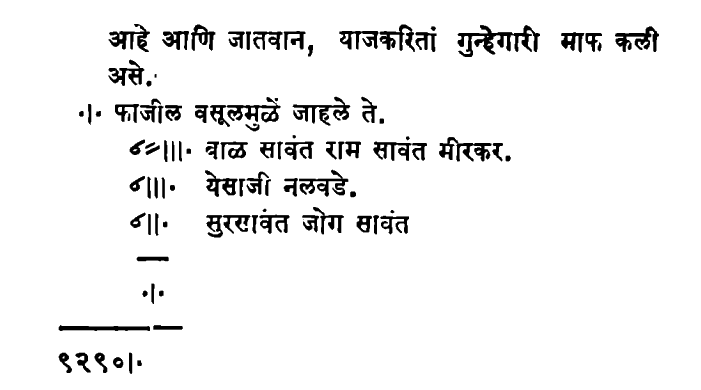 आहे आणि जातवान, याजकरितां गुन्हेगारी माफ कली
असे.
·|· फाजील वसूलमुळें जाहले ते.
८=|||· बाळ सावंत राम सावंत मीरकर.
८|||· येसाजी नलवडे.
८||· सुरसावंत जोग सावंत
·|·
९२९०|·